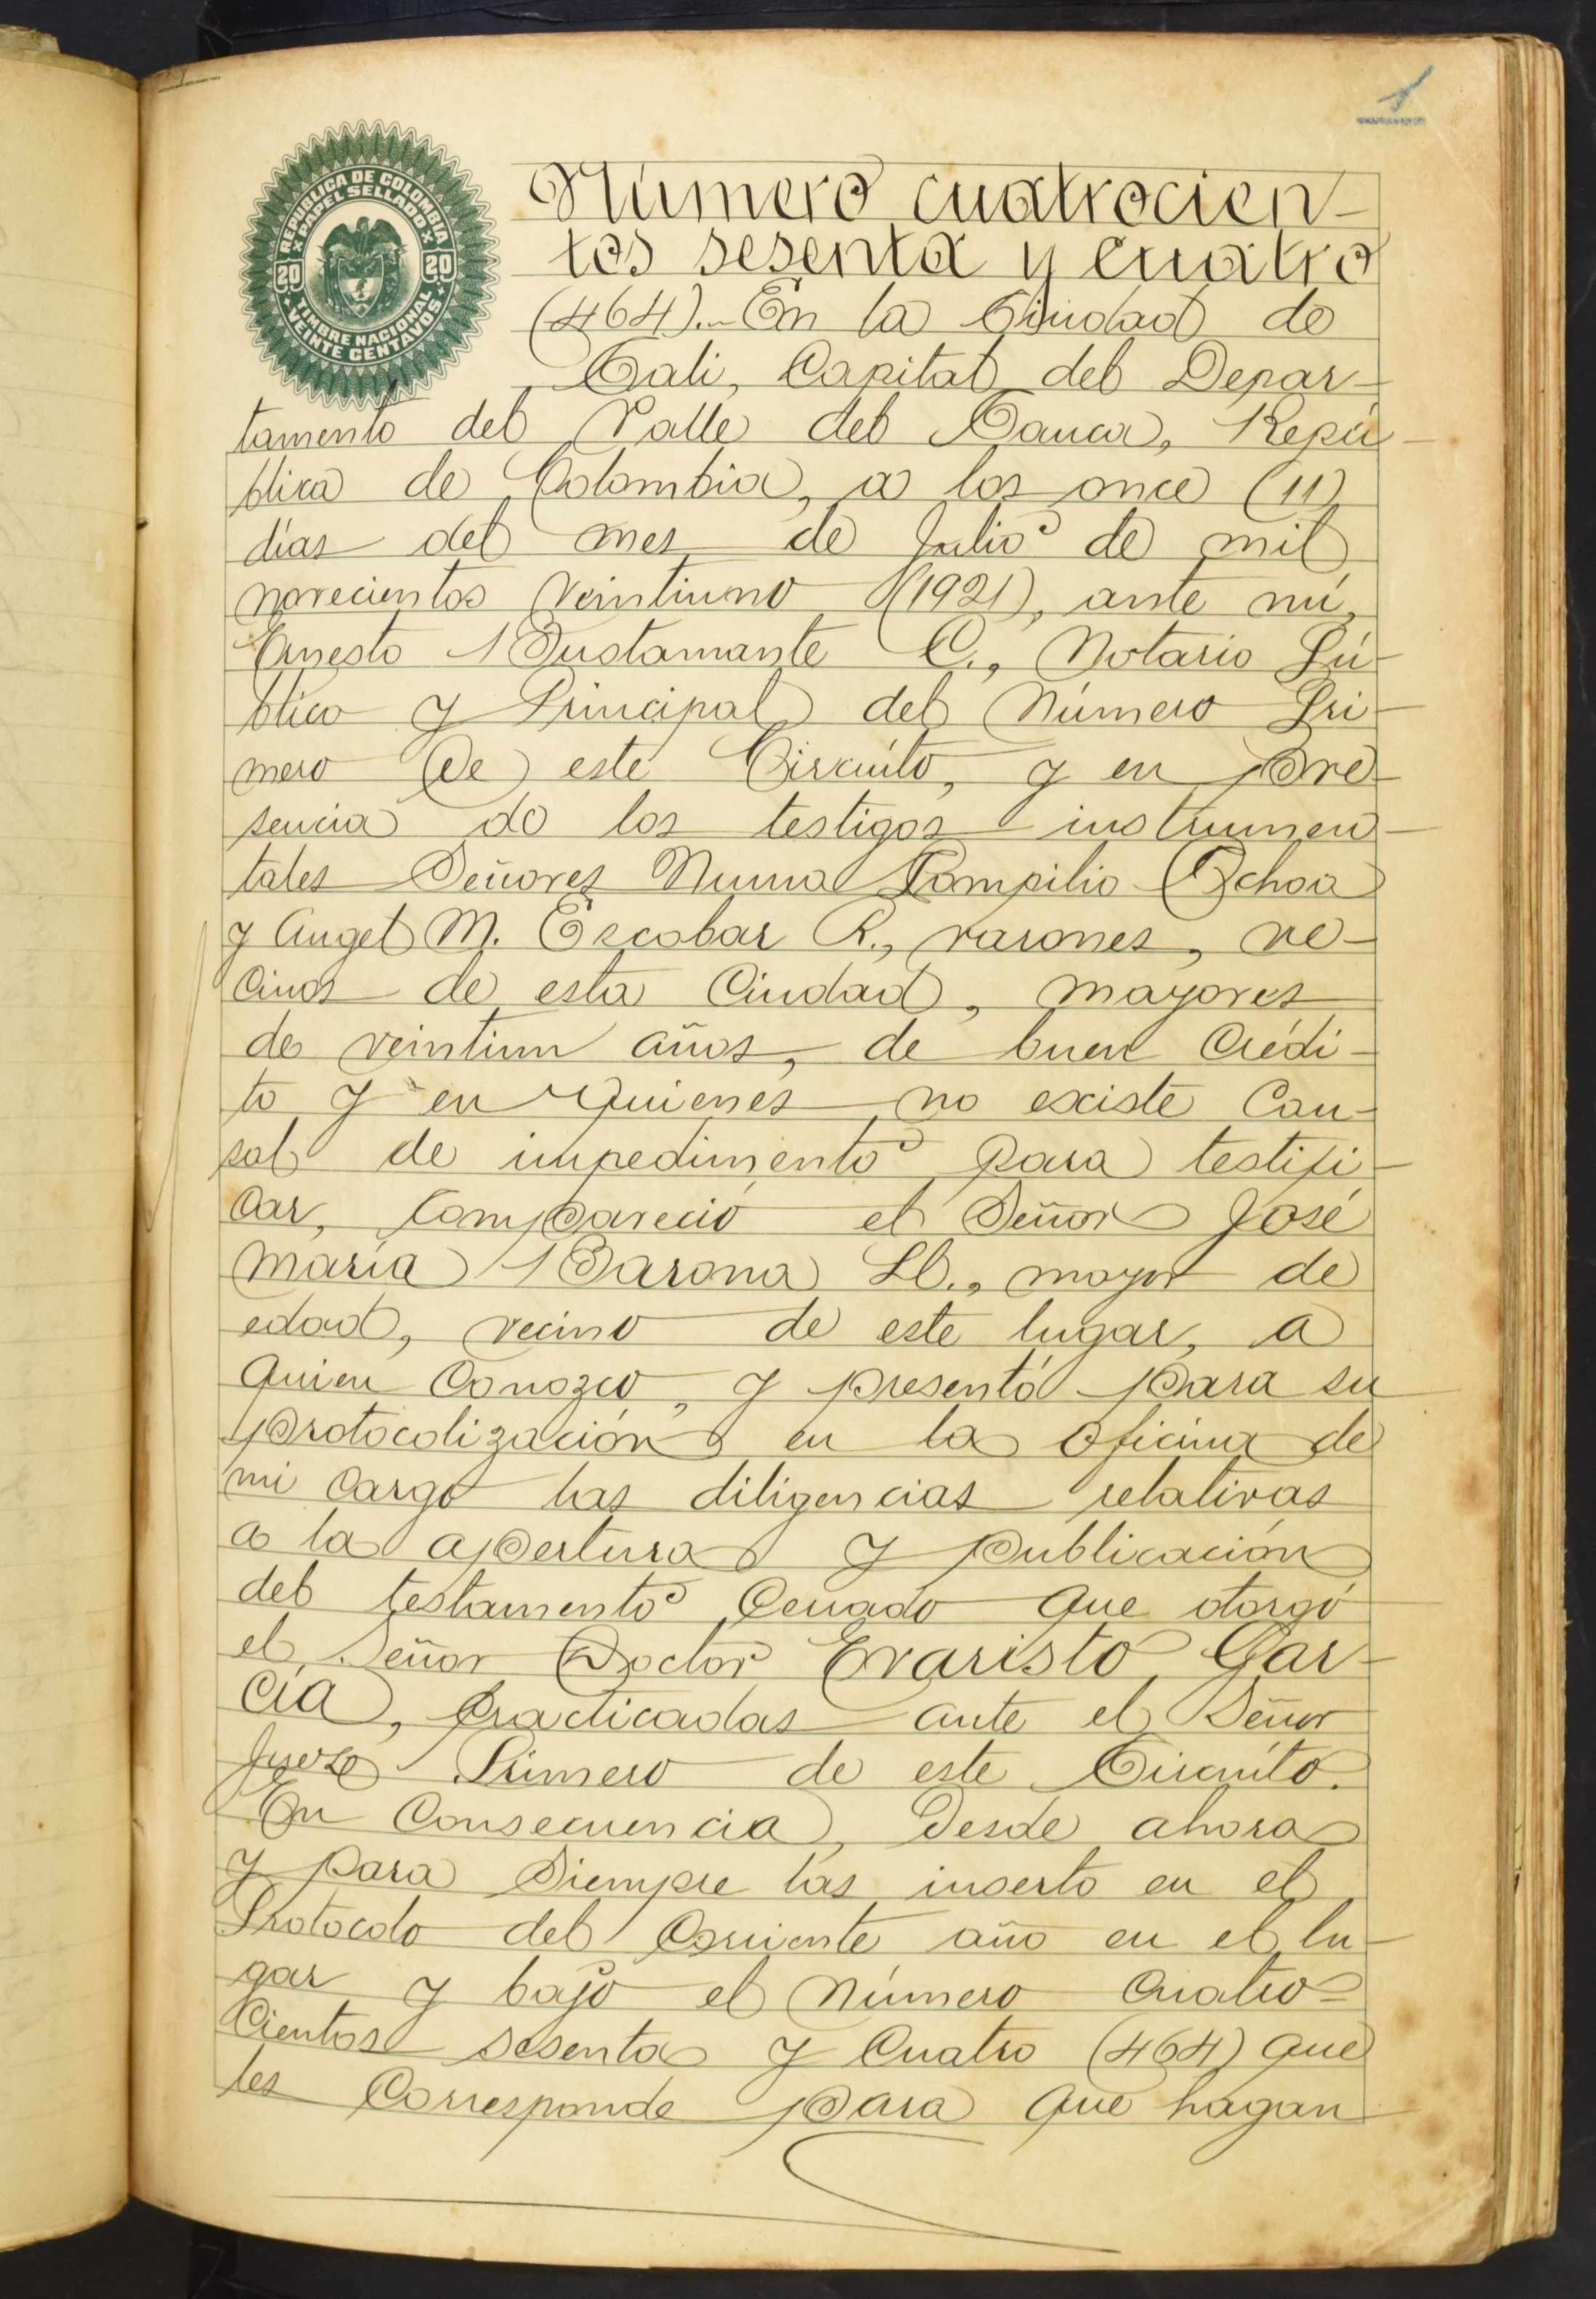 1
REPUBLICA DE COLOMBIA
PAPEL SELLADO
20 20
TIMBRE NACIONAL
VEINTE CENTAVOS
Número cuatrocien-
tos sesenta y cuatro
(464).- En la Ciudad de
Cali, Capital del Depar-
tamento del Valle del Cauca, Repú-
blica de Colombia, a los once (11)
días del mes de Julio de mil
novecientos veintiuno (1921), ante mí,
Ernesto Bustamante C., Notario Pú-
blico y Principal del Número Pri-
mero de este Circuíto, y en pre-
sencia de los testigos instrumen-
tales Señores Numa Pompilio Ochoa
y Angel M. Escobar R., varones, ve-
cinos de esta Ciudad, mayores
de veintiun años, de buen crédi-
to y en quienes no existe Cau-
sal de impedimento para testifi-
car, compareció el Señor José
María Barona Ll., mayor de
edad, vecino de este lugar, a
quien Conozco, y presentó para su
protocolización en la oficina de
mi cargo las diligencias relativas
a la apertura y publicación
del testamento Cerrado que otorgó
el Señor Doctor Evaristo Gar-
cía, practicadas ante el Señor
Juez Primero de este Circuíto.
En Consecuencia, desde ahora
y para Siempre las inserto en el
Protocolo del Corriente año en el lu-
gar y bajo el Número Cuatro-
cientos sesenta y Cuatro (464) que
les Corresponde para que hagan